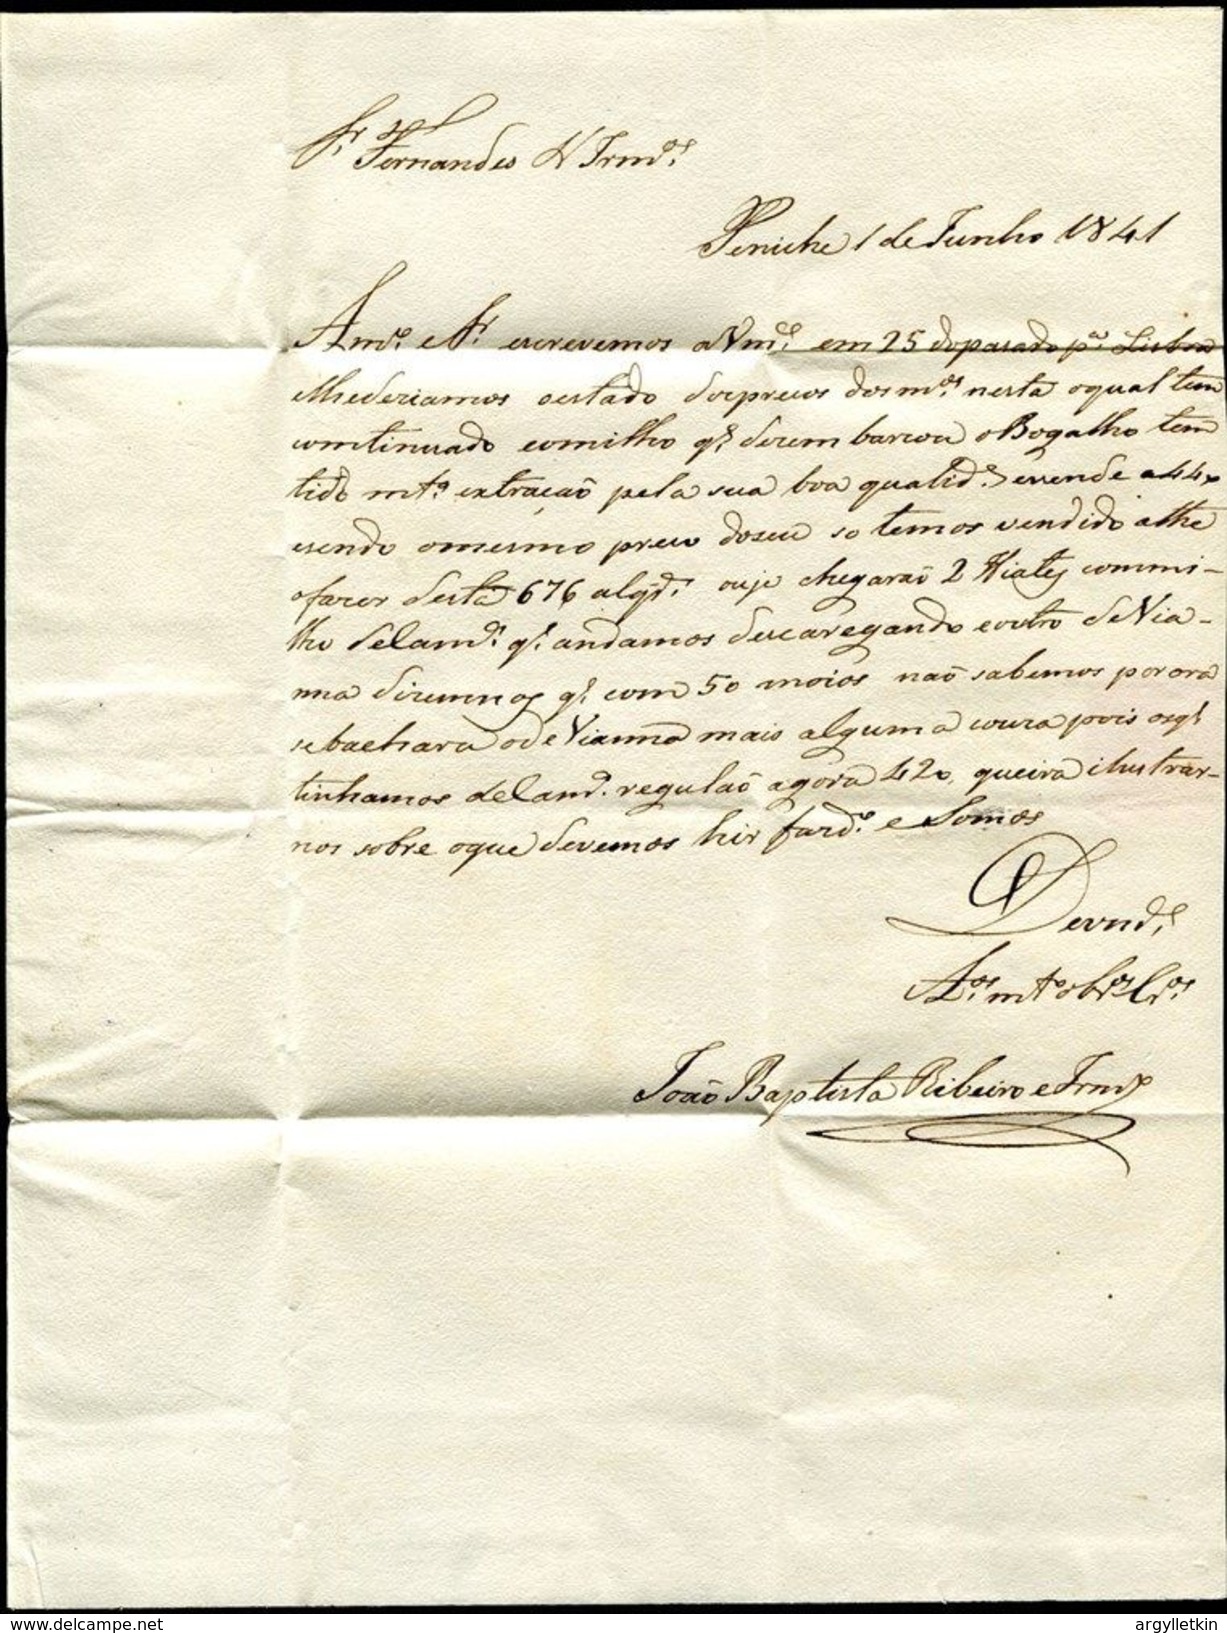 Sr. Fernandes & Irmos.
Peniche 1 de Junho 1841
Amo. e Sr. escrevemos a Vmce. em 25 do pasado pa. Lisboa
e lhe deziamos o estado dos precos dos mos. nesta o qual tem
comtinuado e o milho qe. dezem barcou o Bogalho tem
tido mta. extração pela sua boa qualide. e vende a 44
e sendo o mesmo preco do seu so temos vendido athe
o fazer desta 676 alqes. ouje chegarão 2 Hiates com mi-
lho de qe. andamos descaregando e outro de Via-
nna dizem nos qe. com 50 moios não sabemos por ora
se o de Vianna mais alguma couza pois os qe.
tinhamos de regulão agora 420, queira ilustrar-
nos sobre o que devemos hir fazdo. e Somos
De Vmces.
Aos. mto. obros. Cros.
João Baptista Ribeiro e Irmo.
delcampe.net
argylletkin